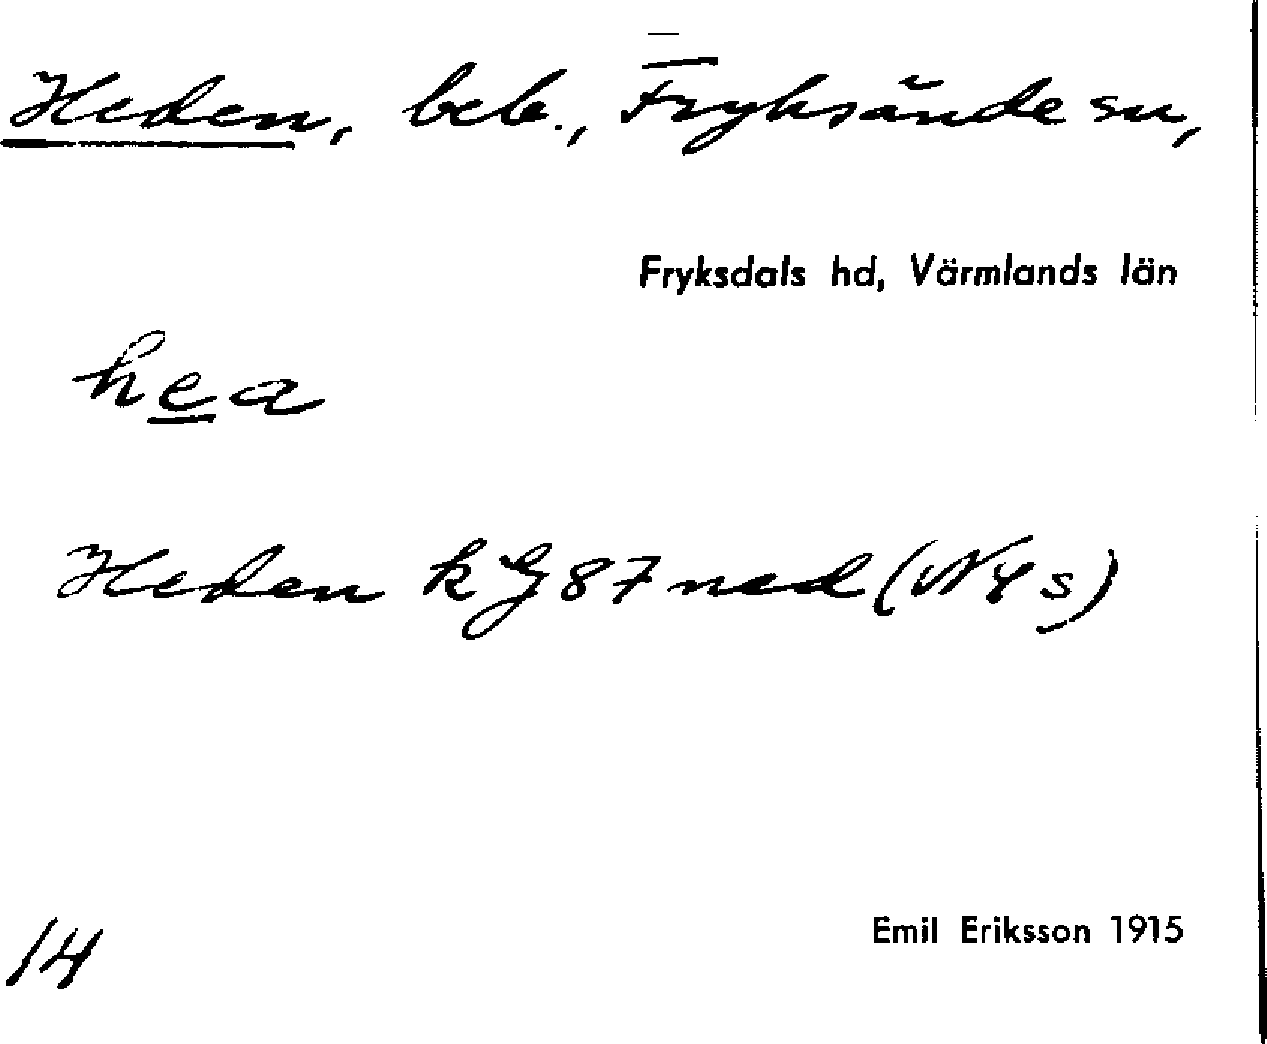 Heden, beb., Fryksände sn,
Fryksdals hd, Värmlands län
hea
Heden kG87ned (NYs)
14
Emil Eriksson 1915